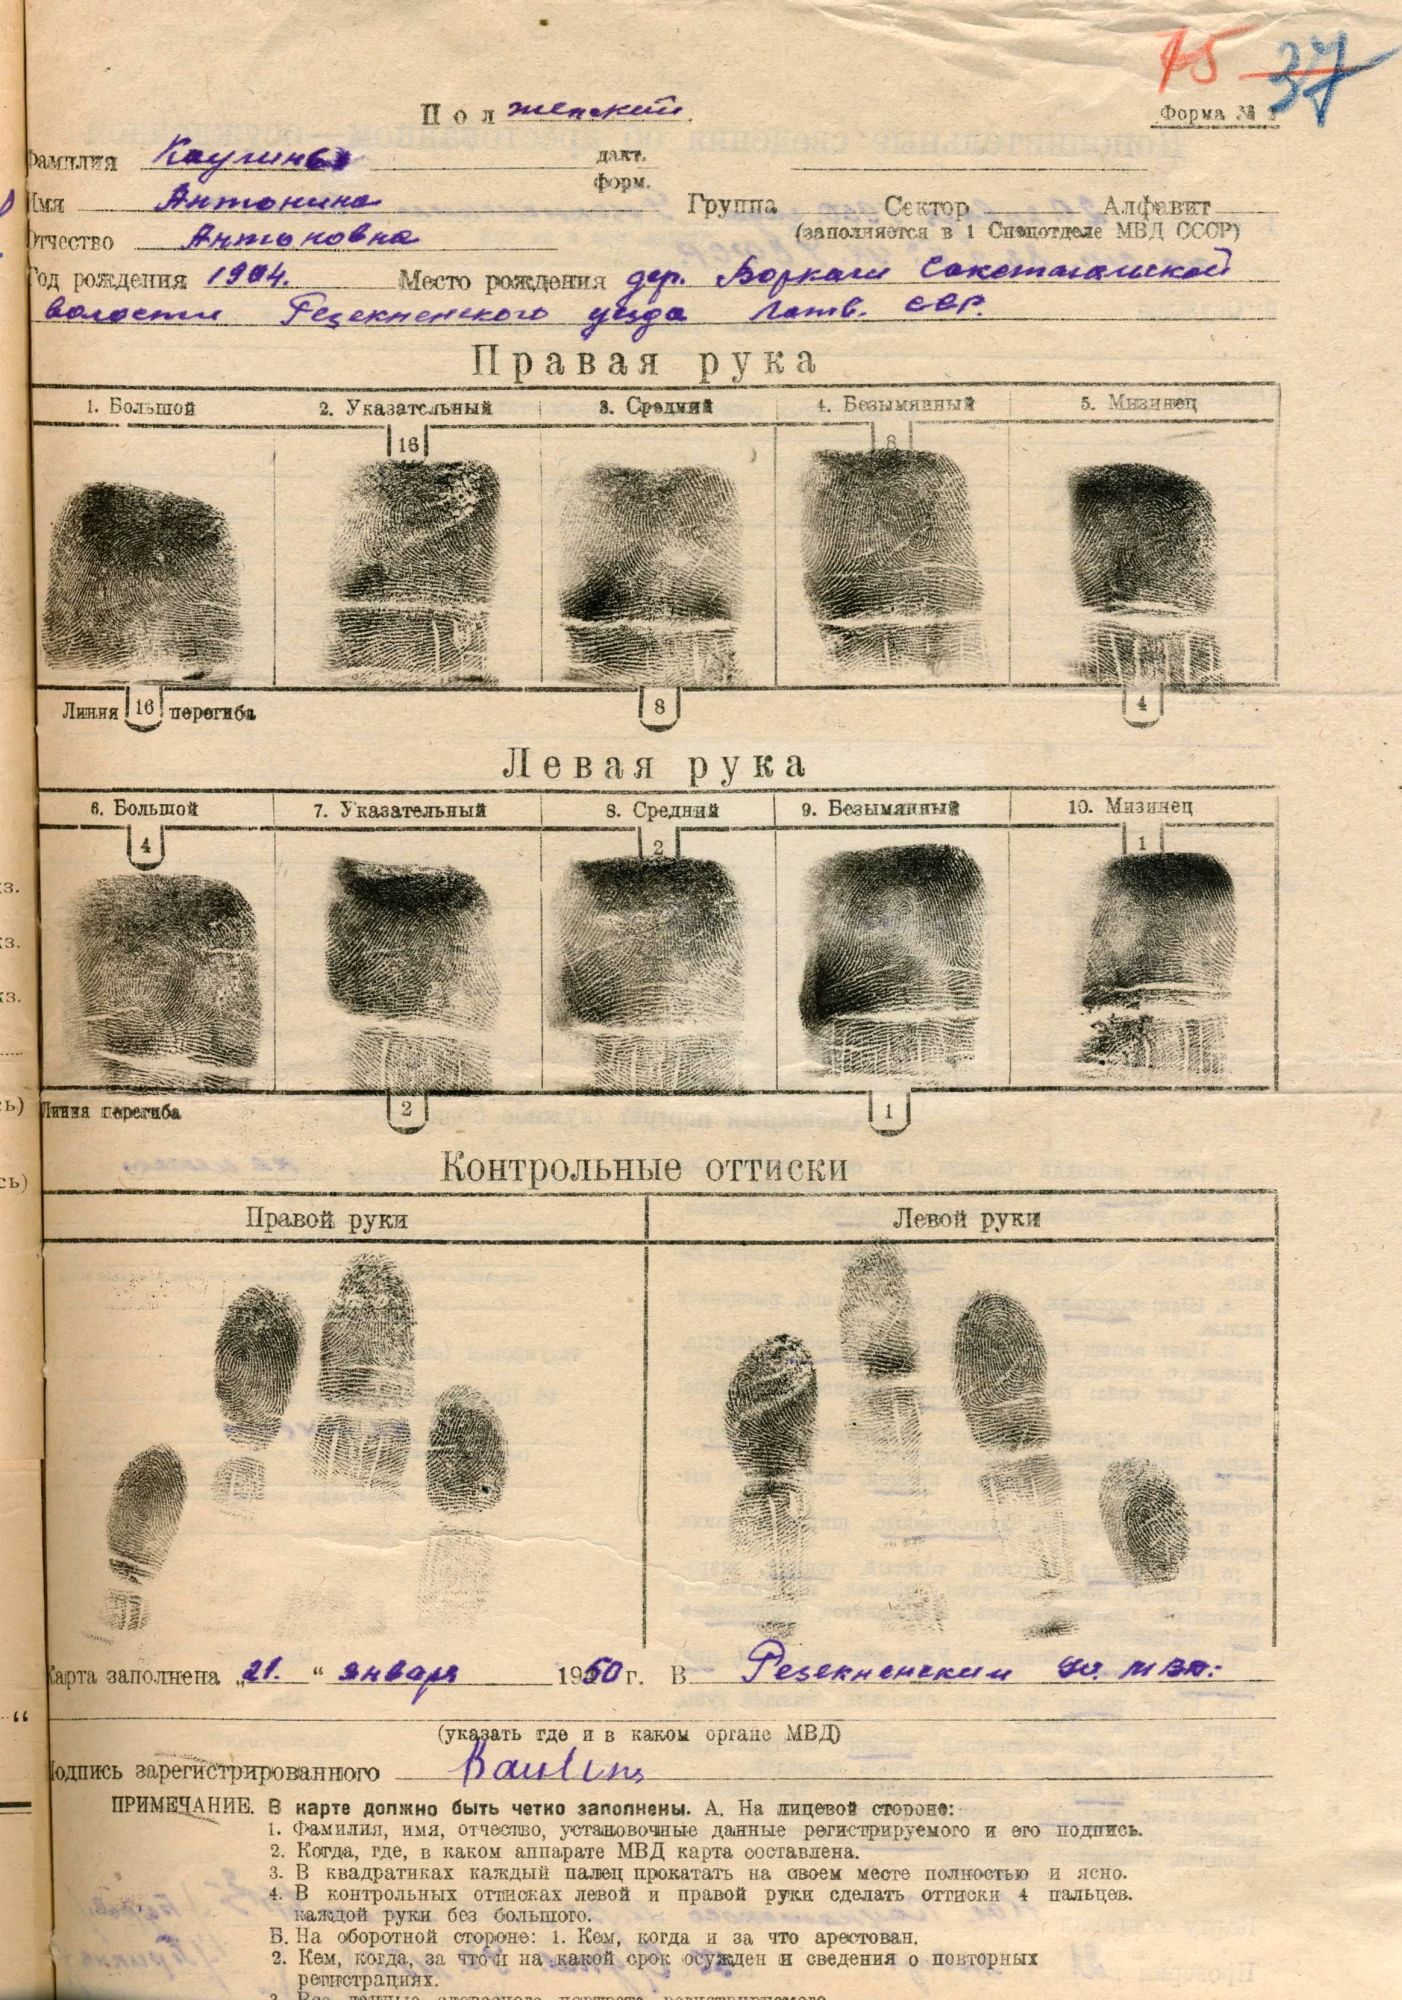 75 37
Пол женский.
Форма № 1
Фамилия Каулинь дакт.
форм.
Имя Антонина Группа Сектор Алфавит
Отчество Антоновна (заполняется в 1 Спецотделе МВД СССР)
Год рождения 1904. Место рождения дер. Воркали Сакстагальской
волости Резекненского уезда Латв. ССР.
Правая рука
1. Большой 2. Указательный 3. Средний 4. Безымянный 5. Мизинец
16 8
Линия 16 перегиба 8 4
Левая рука
6. Большой 7. Указательный 8. Средний 9. Безымянный 10. Мизинец
4 2 1
Линия перегиба 2 1
Контрольные оттиски
Правой руки Левой руки
Карта заполнена „21.“ января 1950 г. В Резекненским УО. МВД.
(указать где и в каком органе МВД)
Подпись зарегистрированного
ПРИМЕЧАНИЕ. В карте должно быть четко заполнены. А. На лицевой стороне:
1. Фамилия, имя, отчество, установочные данные регистрируемого и его подпись.
2. Когда, где, в каком аппарате МВД карта составлена.
3. В квадратиках каждый палец прокатать на своем месте полностью и ясно.
4. В контрольных оттисках левой и правой руки сделать оттиски 4 пальцев.
каждой руки без большого.
Б. На оборотной стороне: 1. Кем, когда и за что арестован.
2. Кем, когда, за что и на какой срок осужден и сведения о повторных
регистрациях.